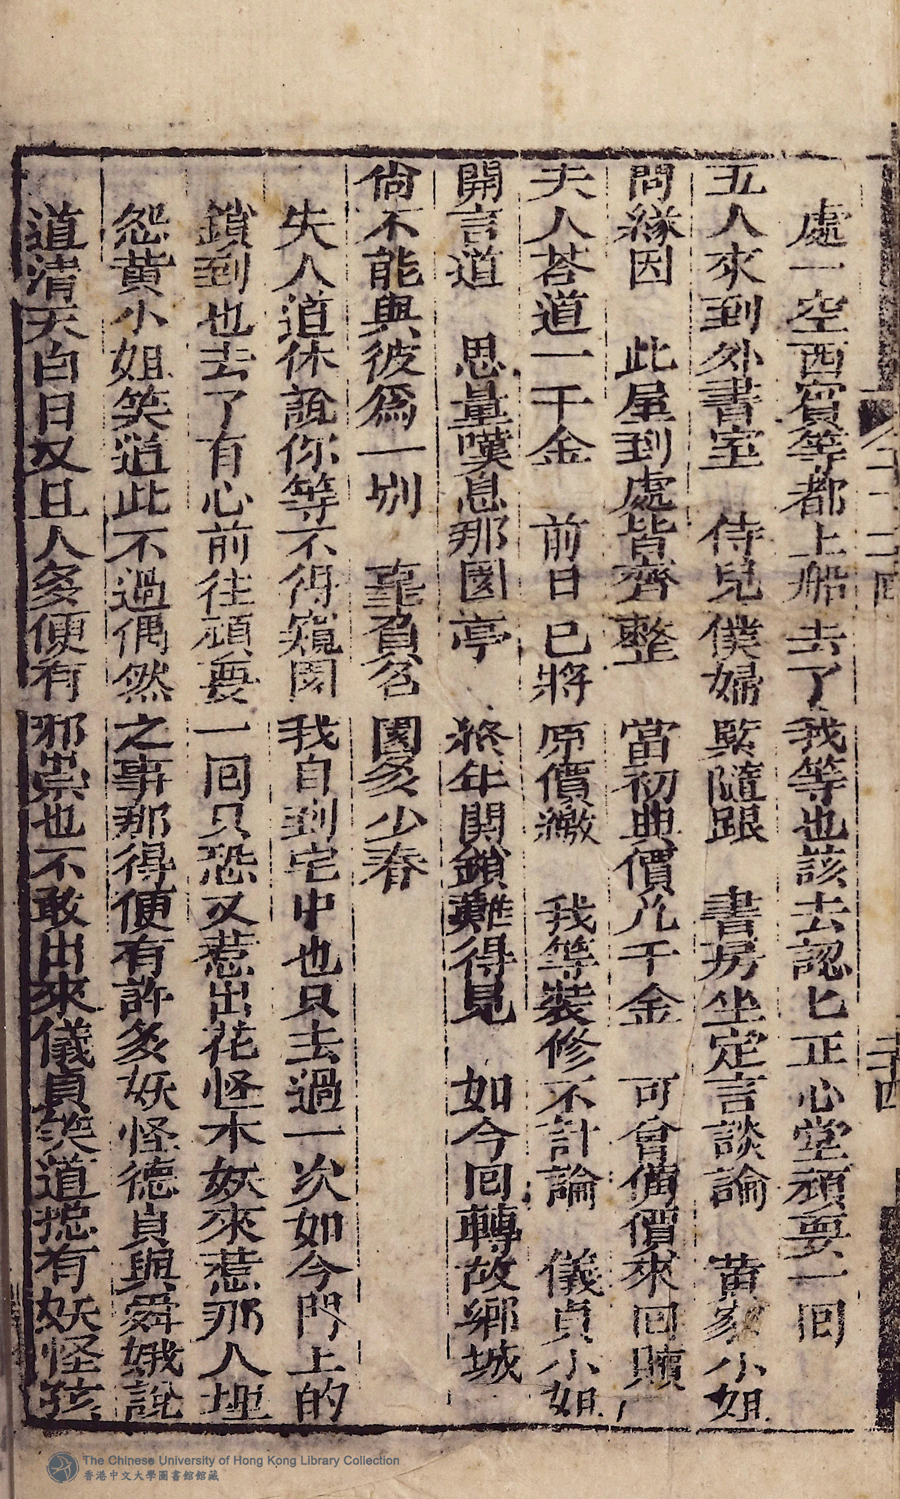 處一空西賓等都上船去了我等也該去認匕正心堂頑耍一囬
五人來到外書室 侍兒僕婦緊隨跟 書房坐定言談論 黄家小姐
問緣因 此屋到處皆齊整 當初典價几千金 可曾備價來囬贖
夫人荅道一千金 前日已將原價繳 我等裝修不計論 儀貞小姐
開言道 思量嘆息那園亭 終年関鎖難得見 如今囬轉故鄉城
尙不能與彼爲一別 辜負名園多少春
夫人道休說你等不得窺園我自到宅中也只去過一次如今門上的
鎖到也去了有心前往頑耍一囬只恐又惹出花怪木妖來惹那人埋
怨黄小姐笑道此不過偶然之事那得便有許多妖怪德貞與舜娥說
道清天白日又且人多便有邪祟也不敢出來儀貞笑道揔有妖怪孩
二囬
二十四
The Chinese University of Hong Kong Library Collection
香港中文大學圖書館館藏